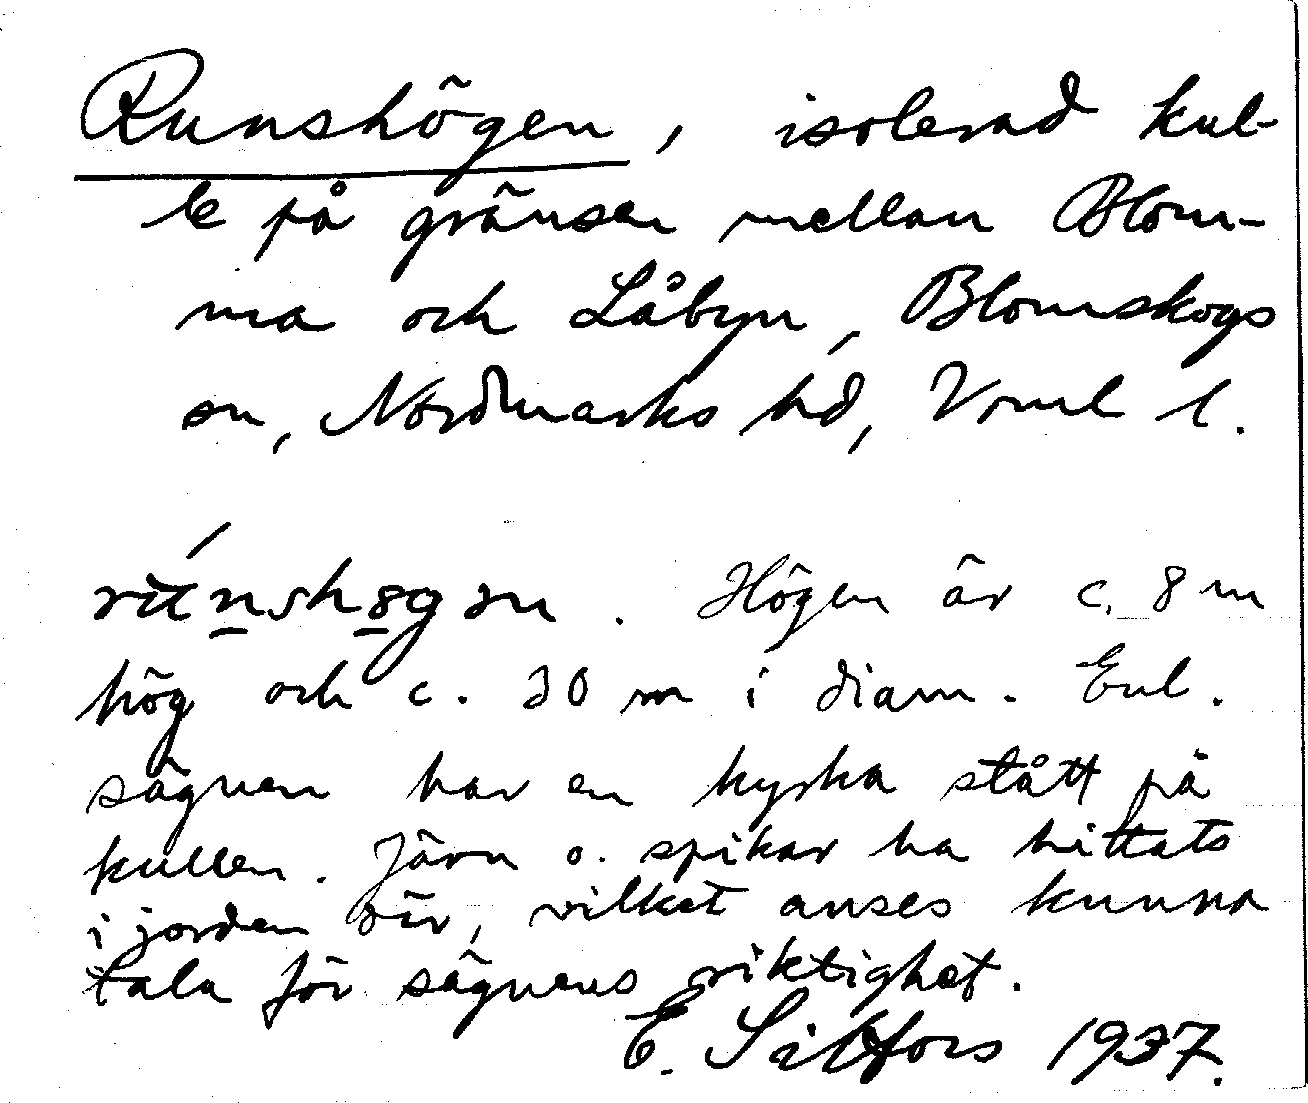 Runshögen, isolerad kul-
le på gränsen mellan Blom-
ma och Låbyn, Blomskogs
sn, Nordmarks hd, Vrml l.
Högen är c. 8 m
hög och c. 30 m i diam. Enl.
sägnen har en kyrka stått på
kullen. Järn o. spikar ha hittats
i jorden där, vilket anses kunna
tala för sägnens riktighet.
E. Silfors 1937.